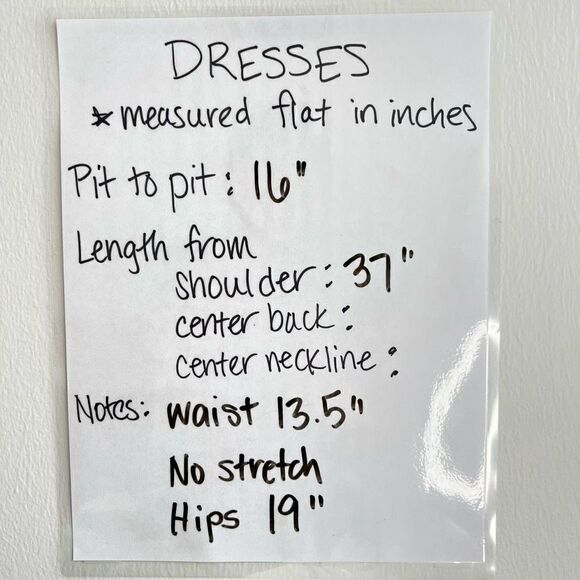 DRESSES
* measured flat in inches
Pit to pit: 16"
Length from
shoulder: 37"
center back:
center neckline:
Notes: waist 13.5"
No stretch
Hips 19"